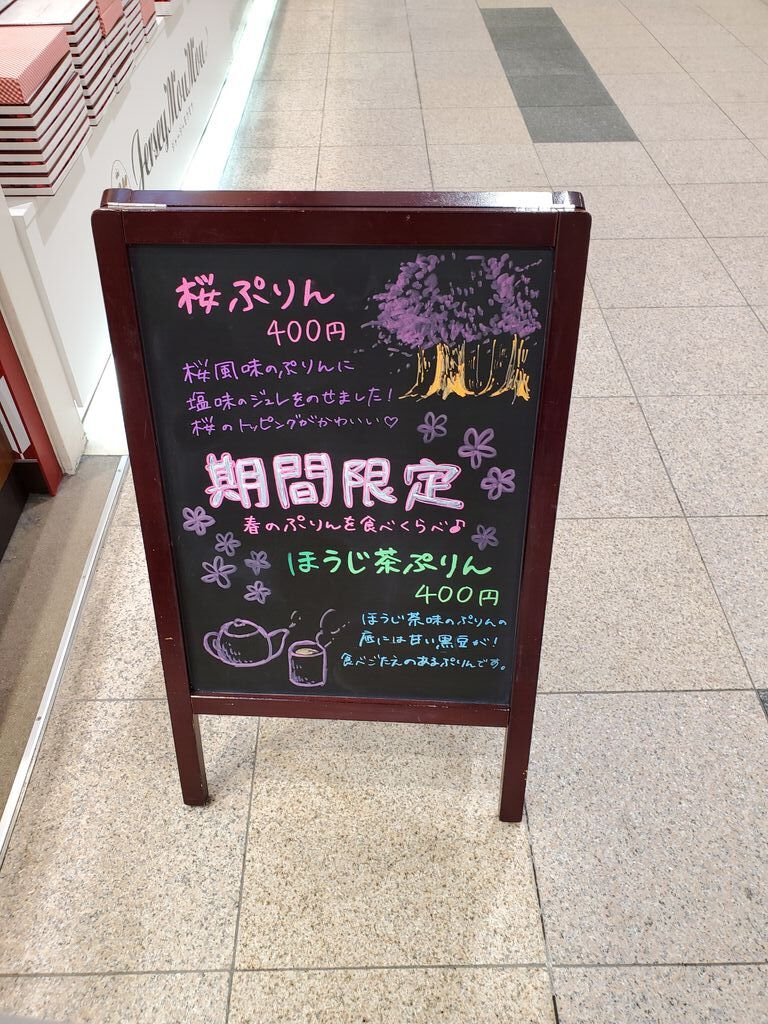 Jersey Mou Mou
桜ぷりん
400円
桜風味のぷりんに
塩味のジュレをのせました!
桜のトッピングがかわいい♡
期間限定
春のぷりんを食べくらべ♪
ほうじ茶ぷりん
400円
ほうじ茶味のぷりんの
底には甘い黒豆が!
食べごたえのあるぷりんです。